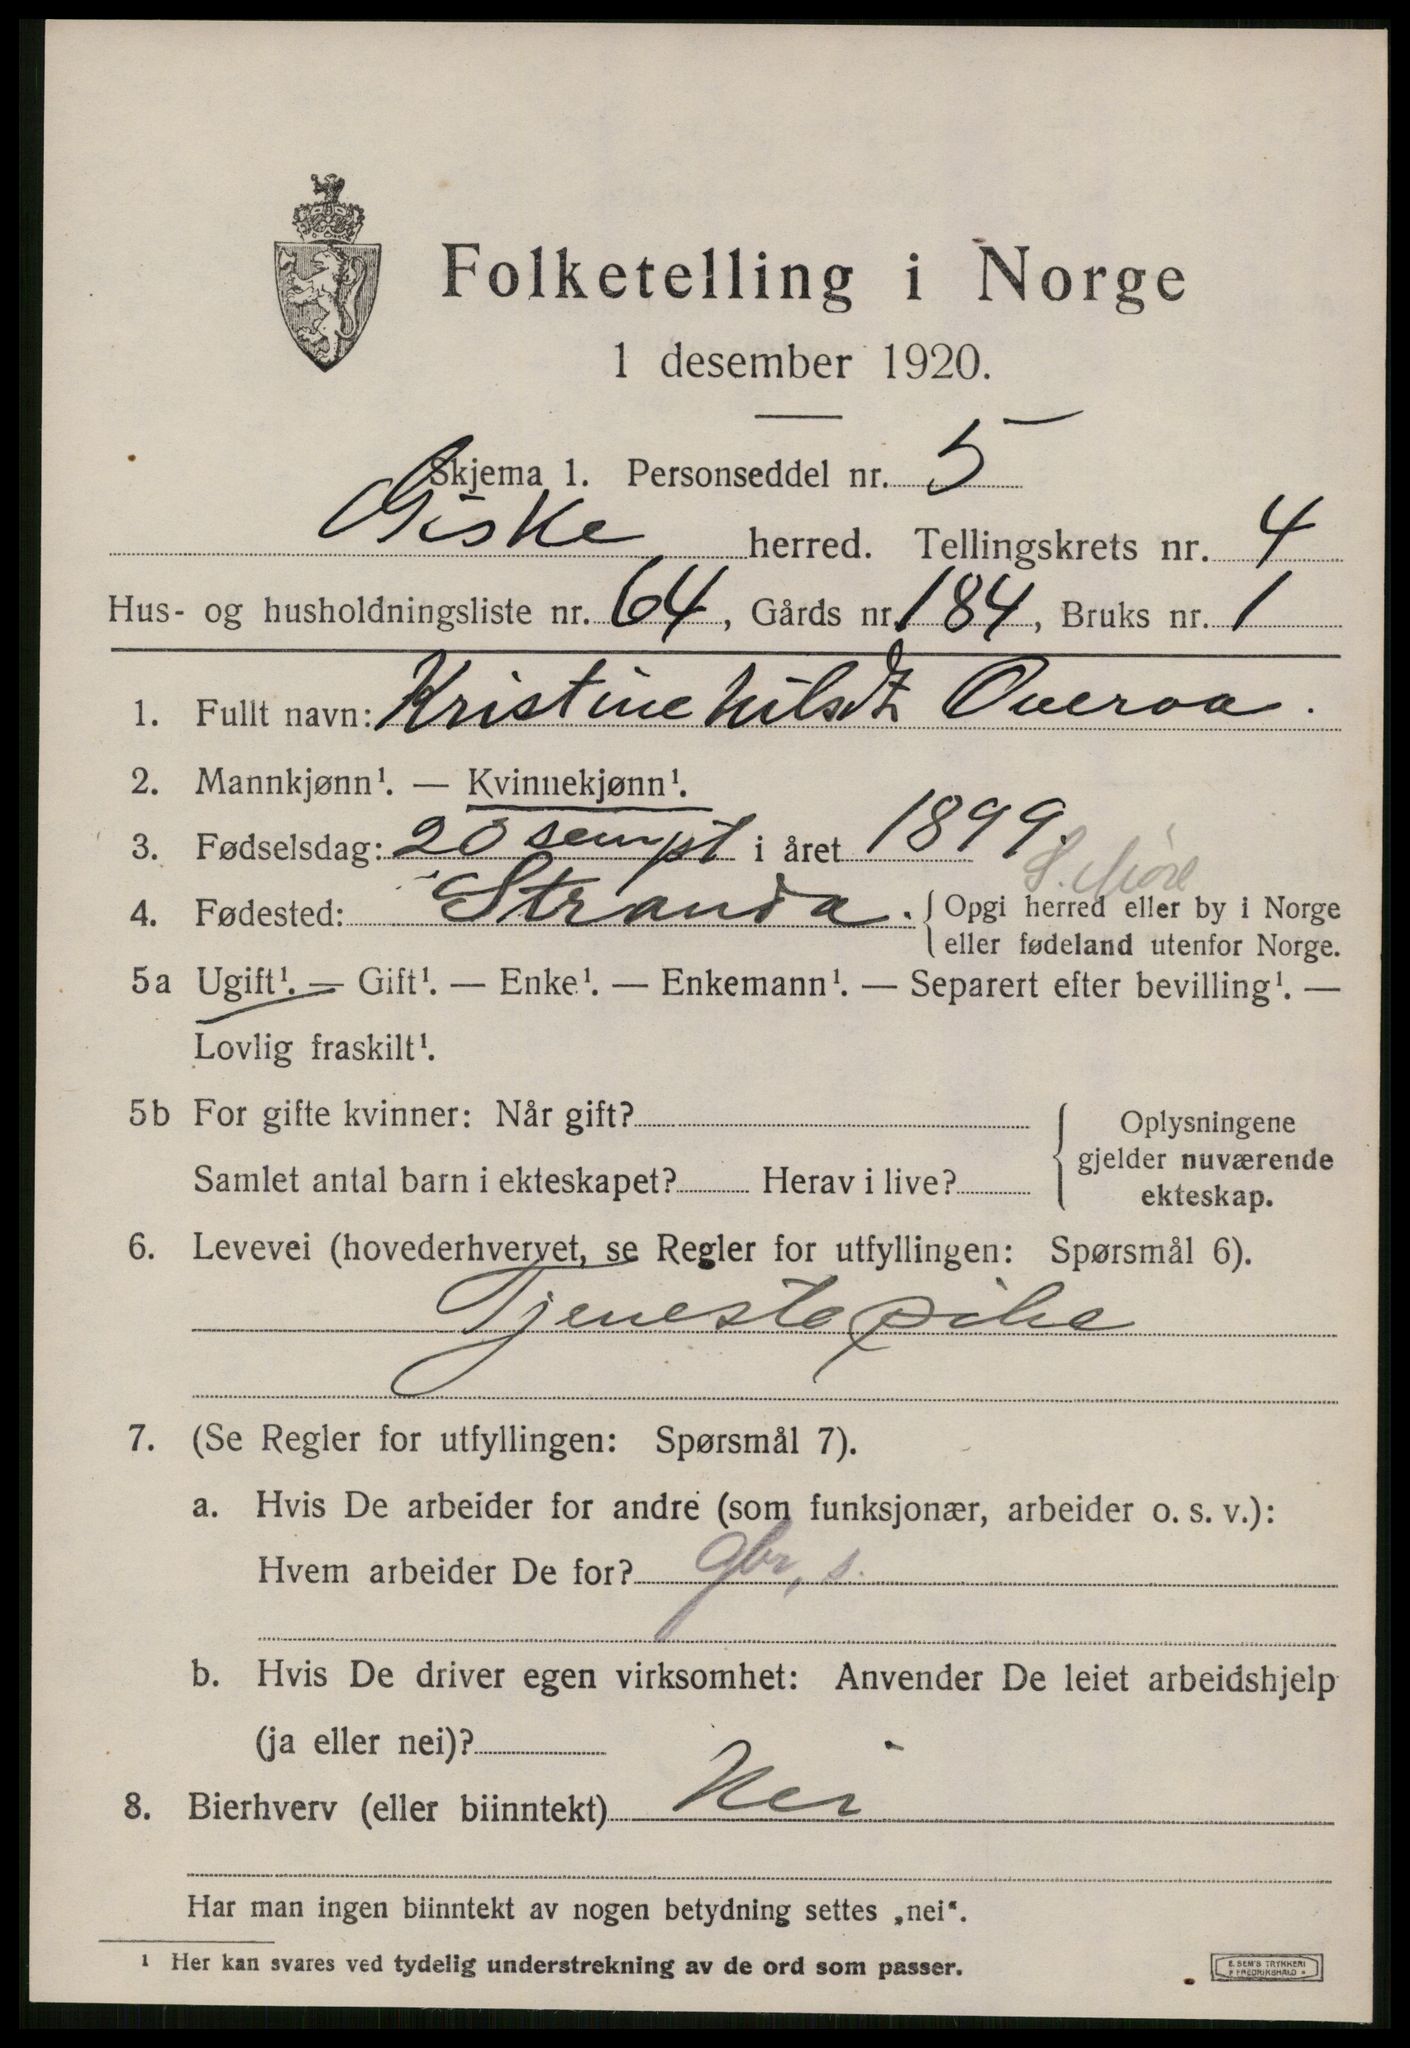 Folketelling i Norge
1 desember 1920.
Skjema 1. Personseddel nr. 5
Giske herred. Tellingskrets nr. 4
Hus- og husholdningsliste nr. 64, Gårds nr. 184, Bruks nr. 1
1. Fullt navn: Kristine Nilsdt Overoa.
2. Mannkjønn¹. — Kvinnekjønn¹.
3. Fødselsdag: 20 sempt i året 1899.
S. Møre
4. Fødested: Stranda. Opgi herred eller by i Norge
eller fødeland utenfor Norge.
5a Ugift¹. — Gift¹. — Enke¹. — Enkemann¹. — Separert efter bevilling¹. —
Lovlig fraskilt¹.
5b For gifte kvinner: Når gift?
Samlet antal barn i ekteskapet? Herav i live?
Oplysningene
gjelder nuværende
ekteskap.
6. Levevei (hovederhvervet, se Regler for utfyllingen: Spørsmål 6).
Tjenestepike
7. (Se Regler for utfyllingen: Spørsmål 7).
a. Hvis De arbeider for andre (som funksjonær, arbeider o. s. v.):
Hvem arbeider De for? gbr, s.
b. Hvis De driver egen virksomhet: Anvender De leiet arbeidshjelp
(ja eller nei)?
8. Bierhverv (eller biinntekt) Nei
Har man ingen biinntekt av nogen betydning settes „nei“.
¹ Her kan svares ved tydelig understrekning av de ord som passer.
E. SEM'S TRYKKERI
FREDRIKSHALD